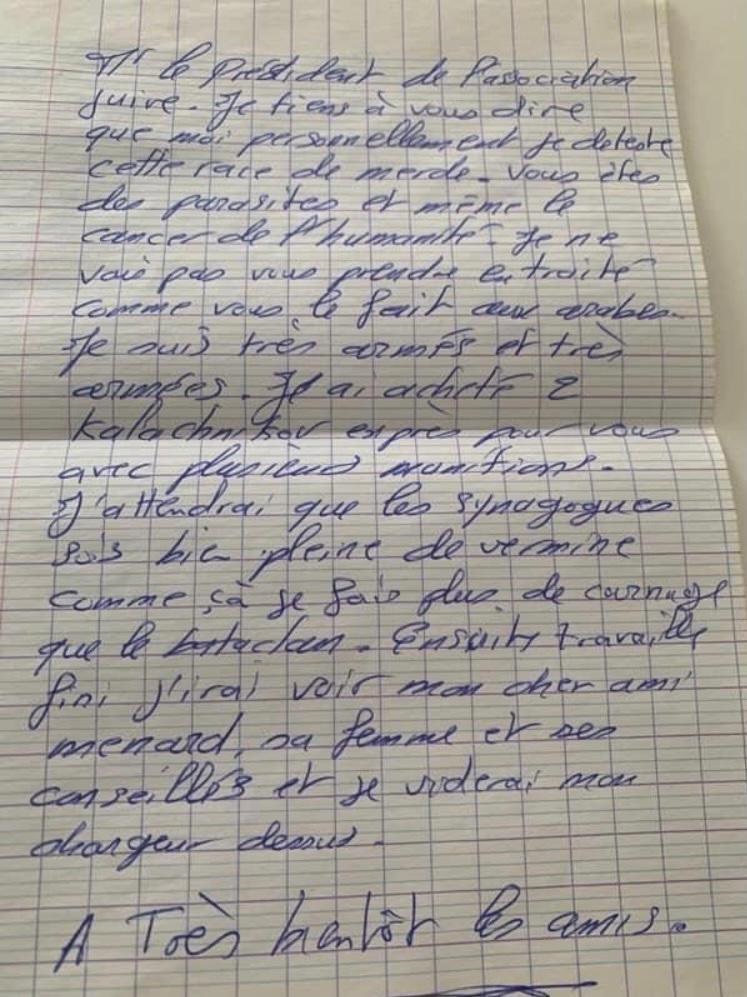 Mr le Président de l'association
juive. Je tiens à vous dire
que moi personnellement je deteste
cette race de merde. Vous êtes
des parasites et même le
cancer de l'humanité. Je ne
vais pas vous prendre en traitê
comme vous le fait aux arabes.
Je suis très armés et très
armées. Je ai acheté 2
Kalachnikov exprès pour vous
avec plusieurs munitions.
J'attendrai que les synagogues
sois bien pleine de vermine
comme çà je fais plus de carnage
que le bataclan. Ensuite travaille
fini j'irai voir mon cher ami
menard, sa femme et ses
conseillés et je viderai mon
chargeur dessus.
A Très bientôt les amis.